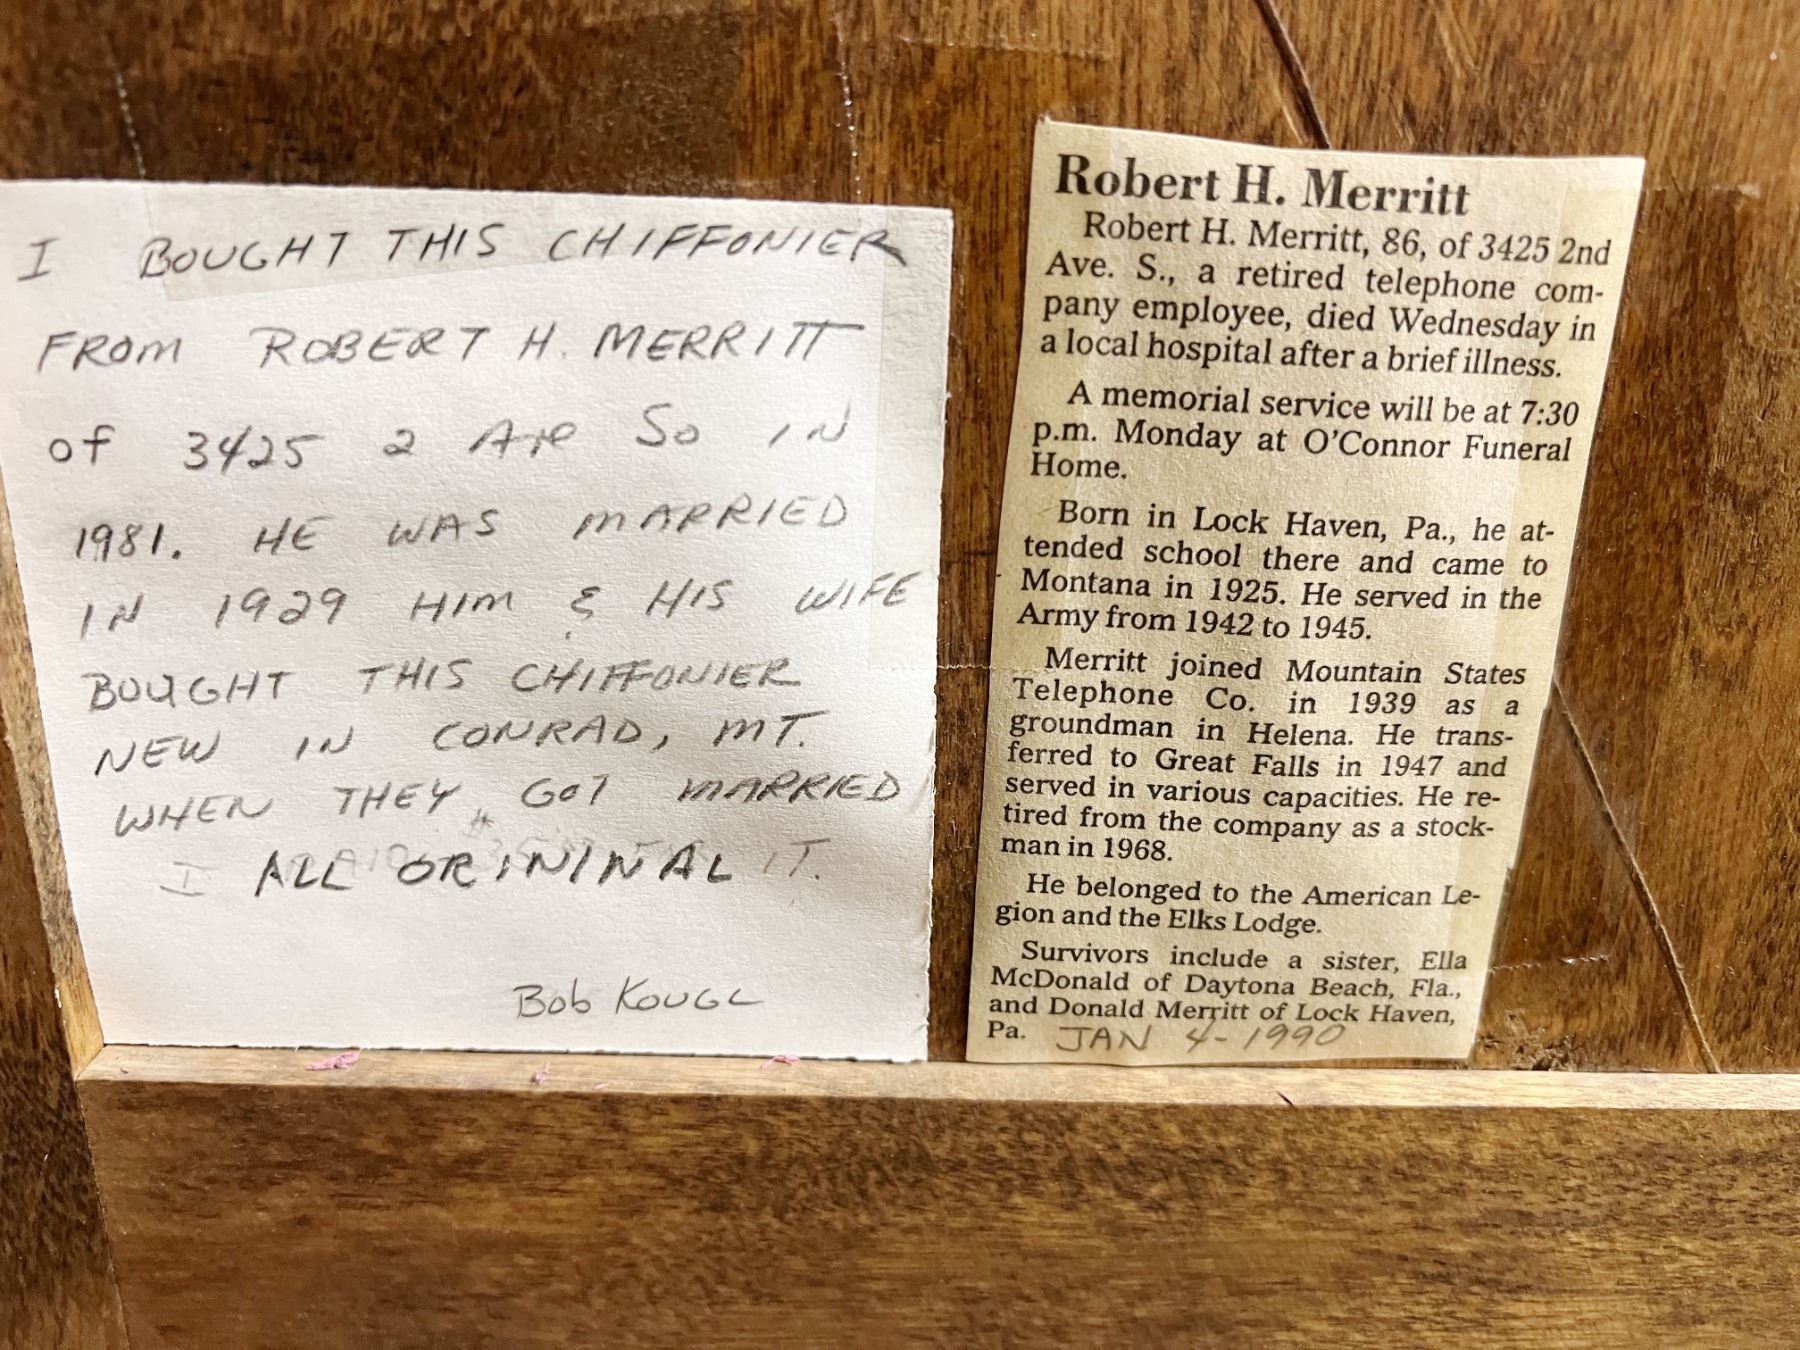 I BOUGHT THIS CHIFFONIER
FROM ROBERT H. MERRITT
of 3425 2 Ave So IN
1981. HE WAS MARRIED
IN 1929 HIM & HIS WIFE
BOUGHT THIS CHIFFONIER
NEW IN CONRAD, MT.
WHEN THEY GOT MARRIED
I ALL ORININAL IT.
Bob KOUGL
Robert H. Merritt
Robert H. Merritt, 86, of 3425 2nd
Ave. S., a retired telephone com-
pany employee, died Wednesday in
a local hospital after a brief illness.
A memorial service will be at 7:30
p.m. Monday at O'Connor Funeral
Home.
Born in Lock Haven, Pa., he at-
tended school there and came to
Montana in 1925. He served in the
Army from 1942 to 1945.
Merritt joined Mountain States
Telephone Co. in 1939 as a
groundman in Helena. He trans-
ferred to Great Falls in 1947 and
served in various capacities. He re-
tired from the company as a stock-
man in 1968.
He belonged to the American Le-
gion and the Elks Lodge.
Survivors include a sister, Ella
McDonald of Daytona Beach, Fla.,
and Donald Merritt of Lock Haven,
Pa. JAN 4-1990